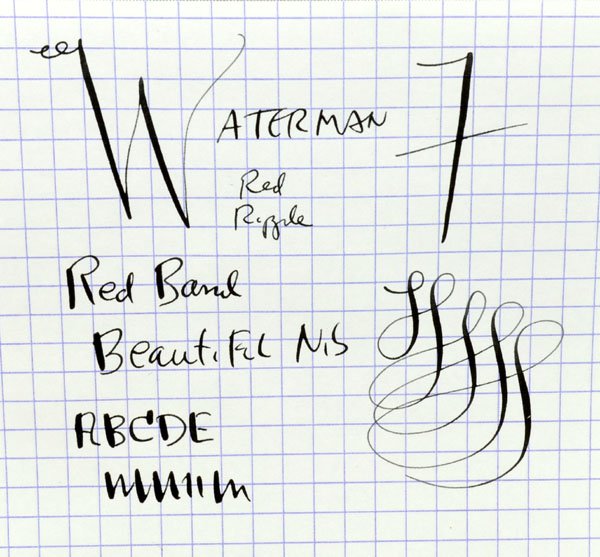 WATERMAN 7
Red
Ripple
Red Band
Beautiful Nib
ABCDE